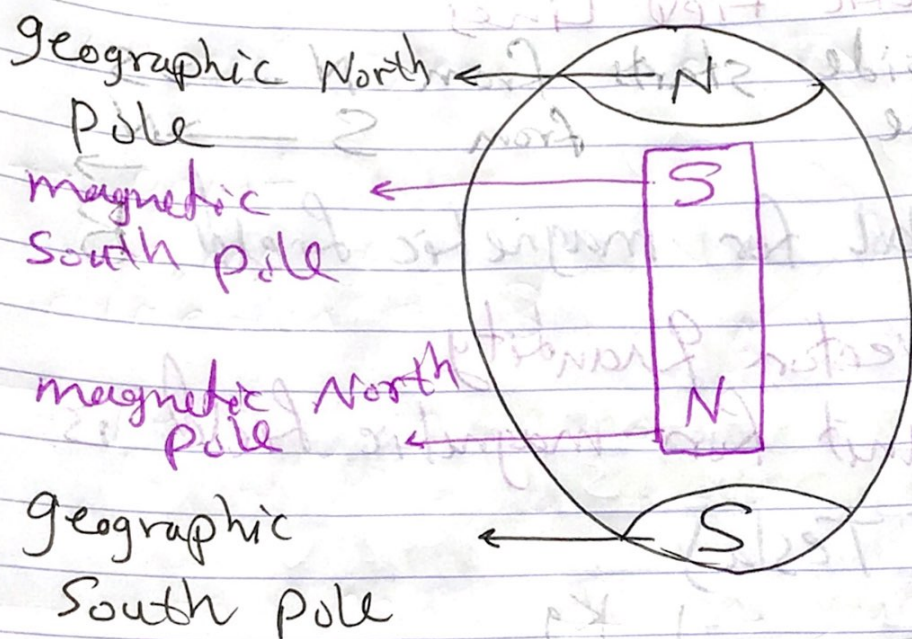 geographic North
Pole
N
magnetic
South pole
S
magnetic North
pole
N
geographic
South pole
S